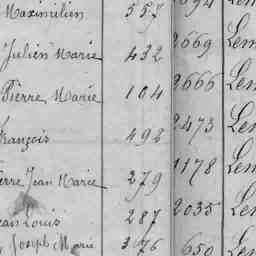 Maximilien 557
Julien Marie 432 2669 Lem
Pierre Marie 104 2666 Lem
François 498 2473 Lem
erre Jean Marie 279 1178 Lem
ean Louis 287 2035 Lem
Joseph Marie 376 650 Lem